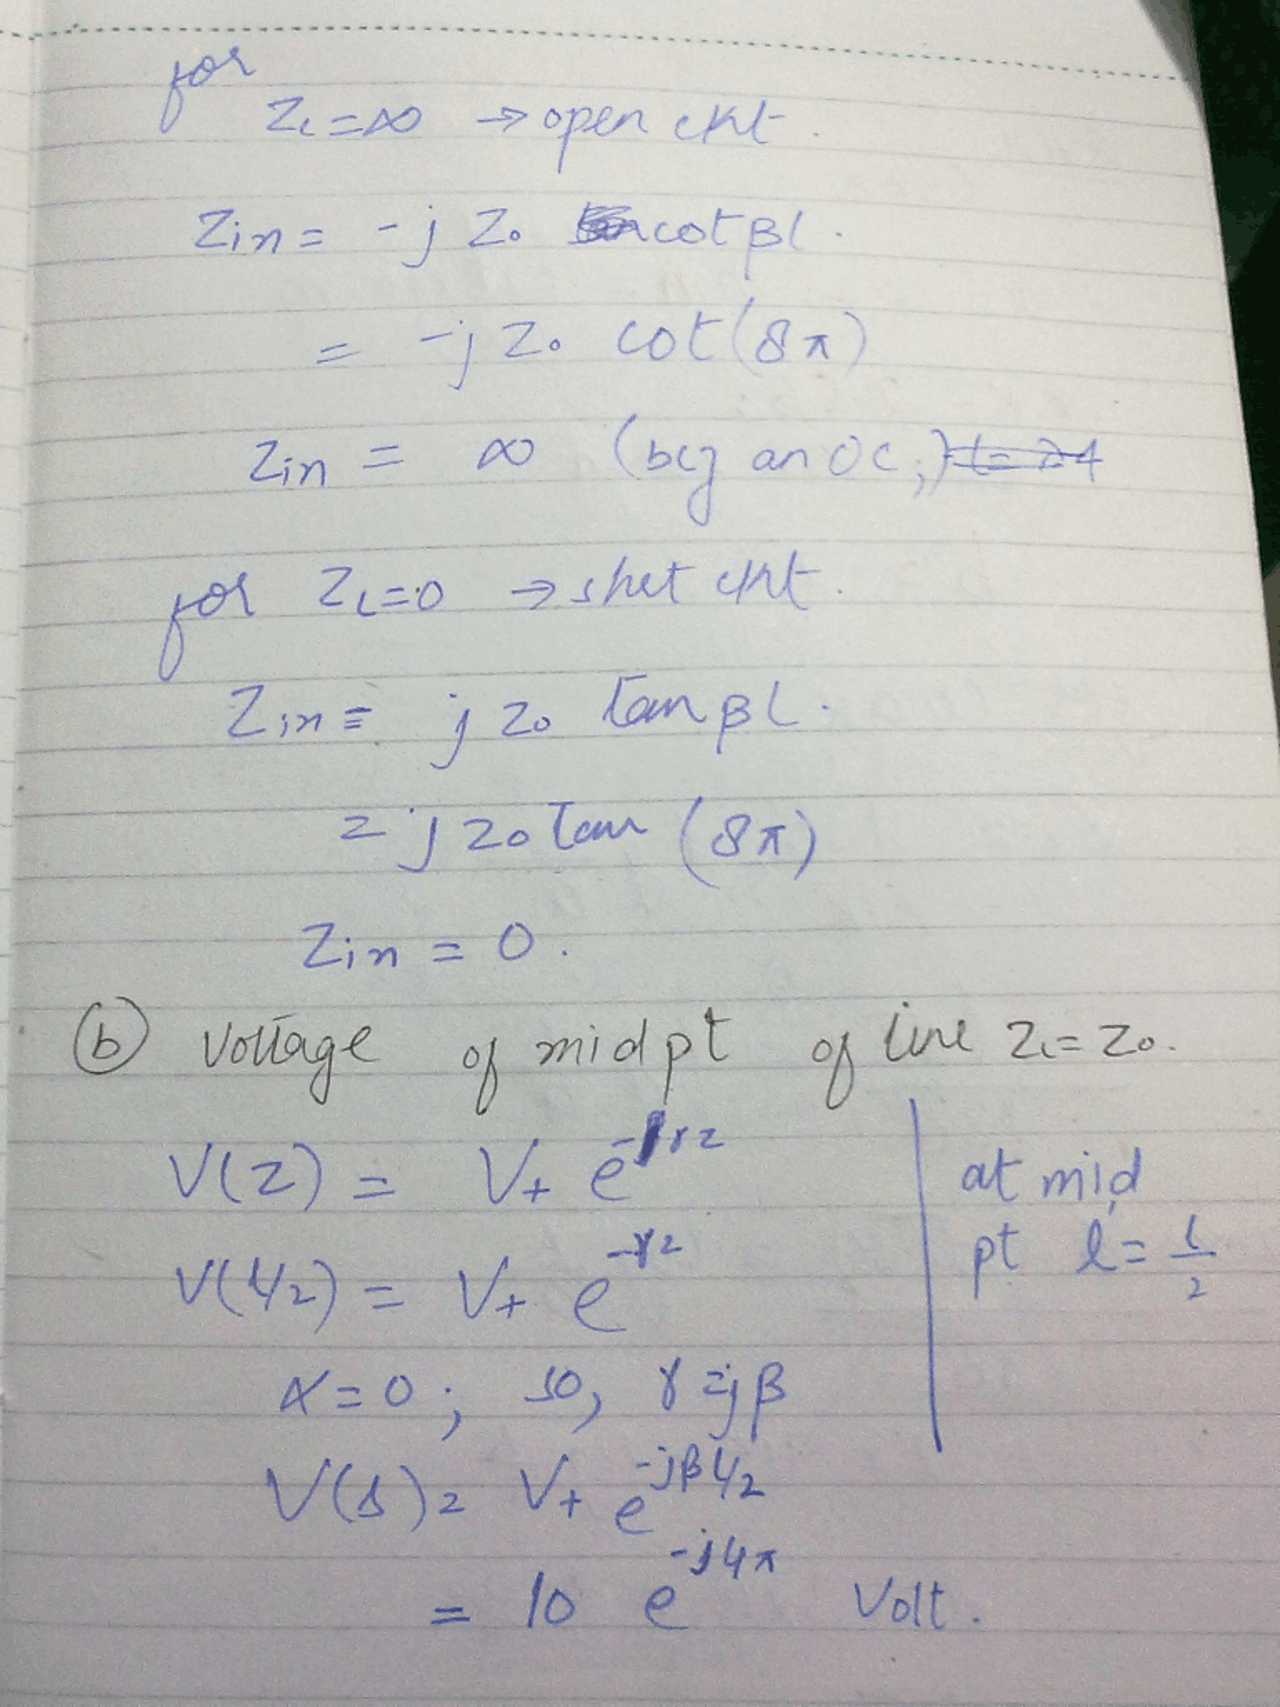 for
Z_L = ∞ → open ckt.
Zin = -j Z₀ cot βl.
= -j Z₀ cot(8π)
Zin = ∞ (bcz an OC;)
for Z_L = 0 → shct ckt.
Zin = j Z₀ tan βL.
= j Z₀ tan (8π)
Zin = 0.
(b) Voltage of mid pt of line Z_L = Z₀.
V(Z) = V₊ e^-γz
at mid
pt l = L/2
V(L/2) = V₊ e^-γz
α = 0; so, γ = jβ
V( ) = V₊ e^-jβL/2
= 10 e^-j4π Volt.